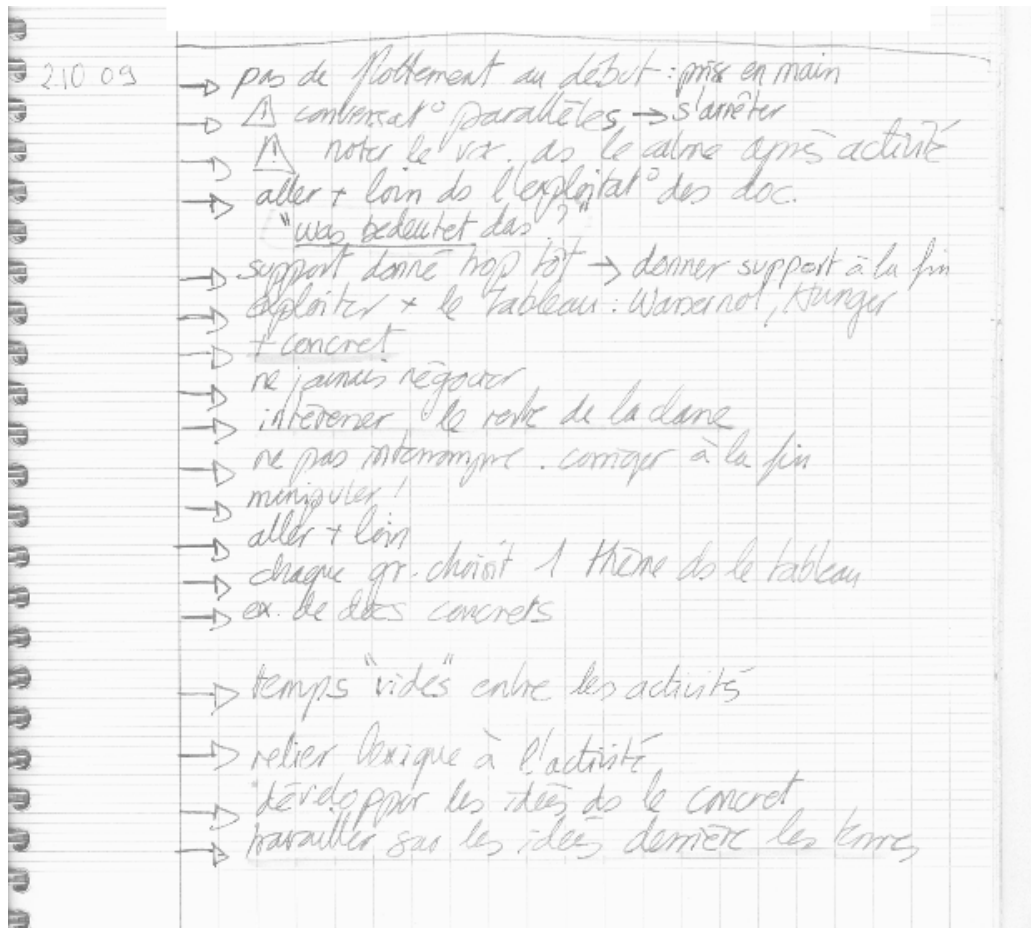 21009 → pas de flottement au début : prise en main
→ ⚠ conversat° parallèles → s'arrêter
→ ⚠ noter le voc. ds le calme après activité
→ aller + loin ds l'exploitat° des doc.
"was bedeutet das ?"
→ support donné trop tôt → donner support à la fin
→ exploiter + le tableau : Wassernot, Hunger
→ + concret
→ ne jamais négocier
→ intéresser le reste de la classe
→ ne pas interrompre. corriger à la fin
→ manipuler !
→ aller + loin
→ chaque gr. choisit 1 thème ds le tableau
→ ex. de docs concrets
→ temps "vides" entre les activités
→ relier lexique à l'activité
→ développer les idées ds le concret
→ travailler sur les idées derrière les termes